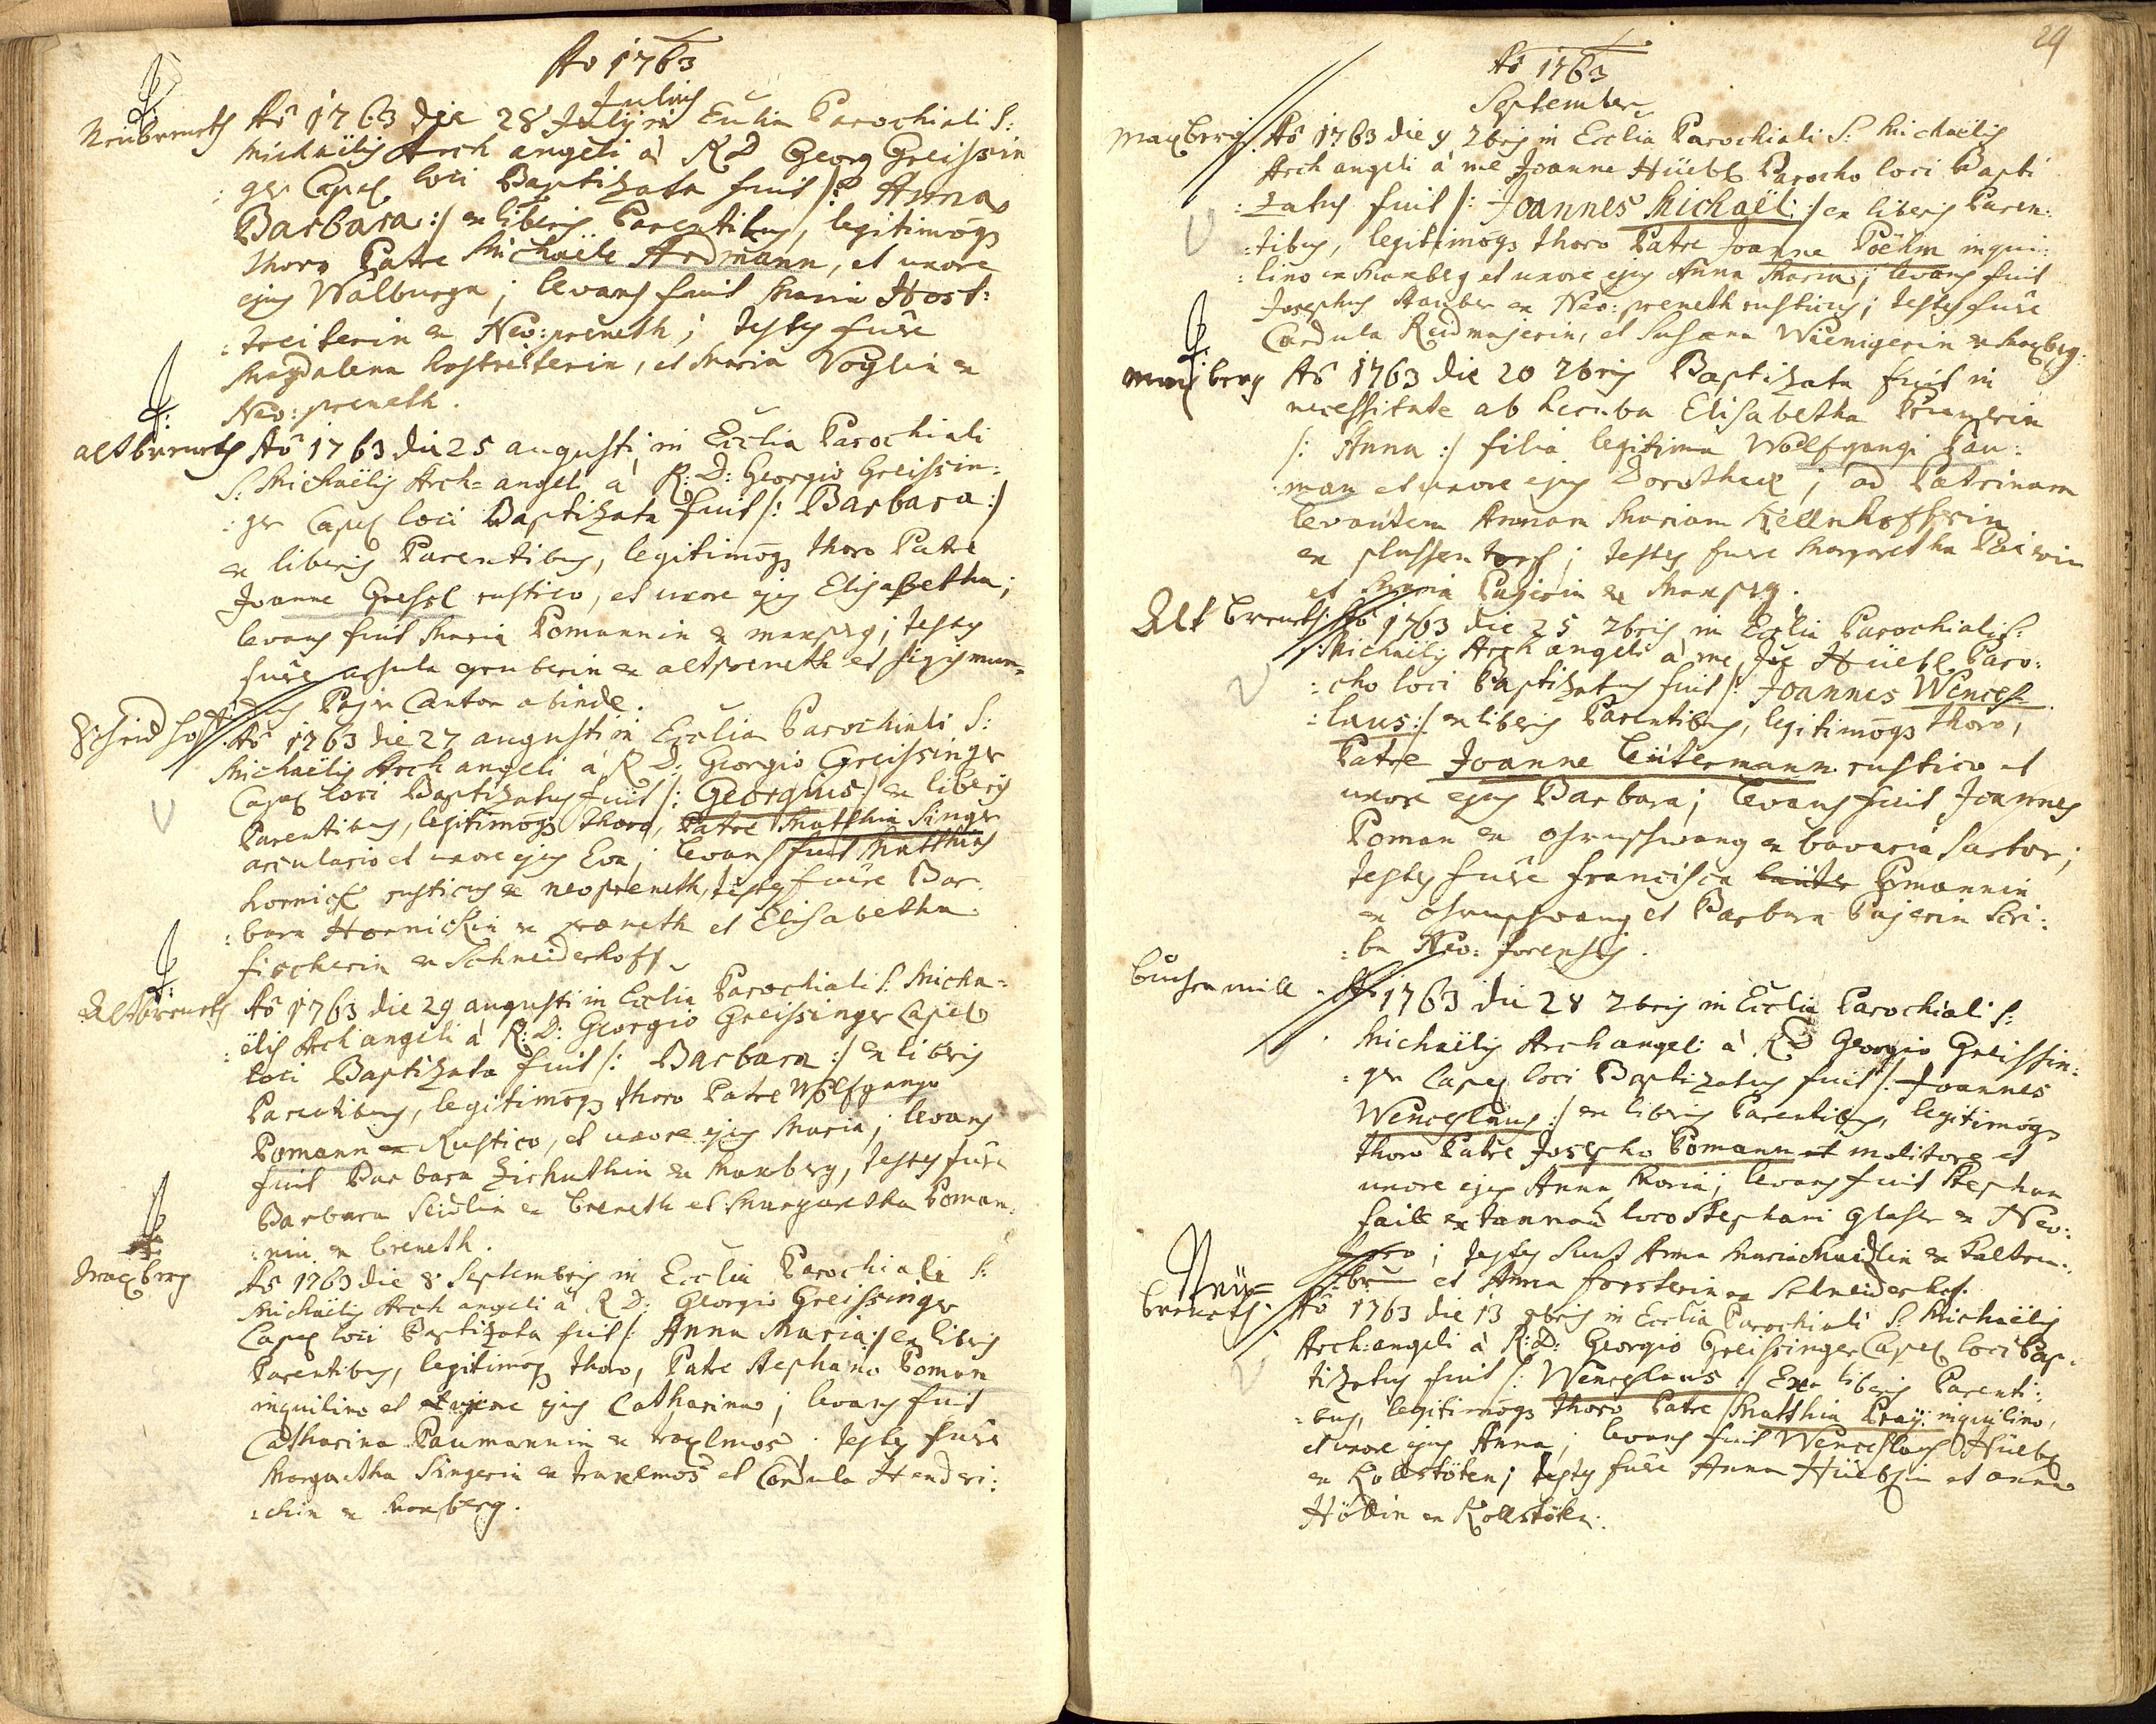 Ao 1763
Julius
Neubreneth
Aô 1763 die 28 Julÿ in Ecclia Parochiali S:
Michaëlis Arch angeli à R D Georg Greissin
: ger Capel loci Baptizata fuit /: Anna
Barbara :/ ex liberis Parentibus, legitimoqз
thoro Patre Michaële Ardmann, et uxore
ejus Walburga; levans fuit Maria Host:
: treiterin ex Neo: preneth; testes fuêre
Magdalena hostreiterin, et Maria Voglin ex
Neo: preneth.
altbreneth
Aô 1763 die 25 augusti in Ecclia Parochiali
S: Michaëlis Arch= angeli à R: D: Georgio Greissin=
: ger Capel loci Baptizata fuit /: Barbara :/
ex liberis Parentibus, legitimoqз thoro Patre
Joanne Gressl rustico, et uxore ejus Elisabetha;
levans fuit Maria Pomannin ex maxprg; testes
fuêre ursula gruberin ex altpreneth et sigismun=
dus Pajr Cantor abinde.
Schneidhoff
Aô 1763 die 27 augusti in Ecclia Parochiali S:
Michaëlis Arch angeli à R D: Georgio Greissinger
Capel loci Baptizatus fuit /: Georgius :/ ex liberis
Parentibus, legitimoqз thoro, Patre Matthia Singer
arculario et uxore ejus Eva; levans fuit Matthias
hornich rusticus ex neopreneth, testes fuêre Bar
: bara Hornickin ex preneth et Elisabetha
fischerin ex Schneiderhoff.
Altbreneth
Aô 1763 die 29 augusti in Ecclia Parochiali S: Micha=
: ëlis Arch angeli à R: D: Georgio Greissinger Capel
loci Baptizata fuit /: Barbara :/ ex liberis
Parentibus, legitimoqз thoro Patre Wolfgango
Pomann ex Rustico, et uxore ejus Maria; levans
fuit Barbara Zirhuthin ex Maxberg, testes fuêre
Barbara Seidlin ex breneth et Margaretha Poman:
: nin ex breneth.
Maxberg
Aô 1763 die 8 Septembris in Ecclia Parochiali S:
Michaëlis Arch angeli à R D: Georgio Greissinger
Capel loci Baptizata fuit /: Anna Maria :/ ex libris
Parentibus, legitimoqз thoro, Patre Stephano Poman
inquilino et uxore ejus Catharina; levans fuit
Catharina Paumannin ex traxlmos. testes fuêre
Margaretha Singerin ex traxelmos et Cordula Hendri:
: chin ex Maxberg.
29
Aô 1763
September
Maxberg
Aô 1763 die 9 7bris in Ecclia Parochiali S: Michaëlis
Arch angeli à me Joanne Hüebl Parocho loci Bapti
: zatus fuit /: Joannes Michaël :/ ex liberis Paren:
: tibus, legitimoqз thoro Patre Joanne Poëhm inqui:
: lino ex Maxbeg et uxore ejus Anna Maria; levans fuit
Josephus Stauber ex Neo: preneth rusticus; testes fuêre
Cordula Reidmajerin, et Susanna Wieningerin ex Maxbrg.
Maxberg
Aô 1763 die 20 7bris Baptizata fuit in
necessitate ab herula Elisabetha
/: Anna :/ filia legitima Wolfgangi Pau:
: man et uxore ejus Dorotheae; ad Patrinam
levantem Annam Mariam Kellnhofferin
ex plassendorf; testes fuere Margaretha
et Maria Pajerin ex Maxprg.
Alt breneth:
Aô 1763 die 25 7bris in Ecclia Parochiali S:
Michaëlis Arch angeli à me Joe Hüebl Paro:
: cho loci Baptizatus fuit /: Joannes Wences:
: laus :/ ex liberis Parentibus, legitimoqз thoro,
Patre Joanne Leütermann rustico et
uxore ejus Barbara; levans fuit Joannes
Poman ex ex bavaria Sartor;
testes fuêre francisca Pomannin
ex et Barbara Pajerin Scri:
: ba Neo: forensis.
Buchenmill
Aô 1763 die 28 7bris in Ecclia Parochiali S:
Michaëlis Arch angeli à R D Georgio Greissin:
: ger Capel loci Baptizatus fuit /: Joannes
Wenceslaus :/ ex libris Parentibus, legitimoqз
thoro Patre Josepho Pomann et molitore et
uxore ejus Anna Maria; levans fuit Stephan
fail ex tannau loco Stephani Glaser ex Neo:
foro; testes sunt Anna Maria ex Palten:
: brun et Anna forsterin ex Schneiderhof.
Neü=
breneth:
Aô 1763 die 13 8bris in Ecclia Parochiali S: Michaëlis
Arch: angeli à R: D: Georgio Greissinger Capel loci Bap=
tizatus fuit /: Wenceslaus :/ Ex liberis Parenti:
: bus, legitimoqз thoro Patre Matthia Praÿ inquilino,
et uxore ejus Anna; levans fuit Wenceslaus Hüebl
ex Kollstöten; testes fuêre Anna Hüeblin et anna
Höllin ex Kollstötn.